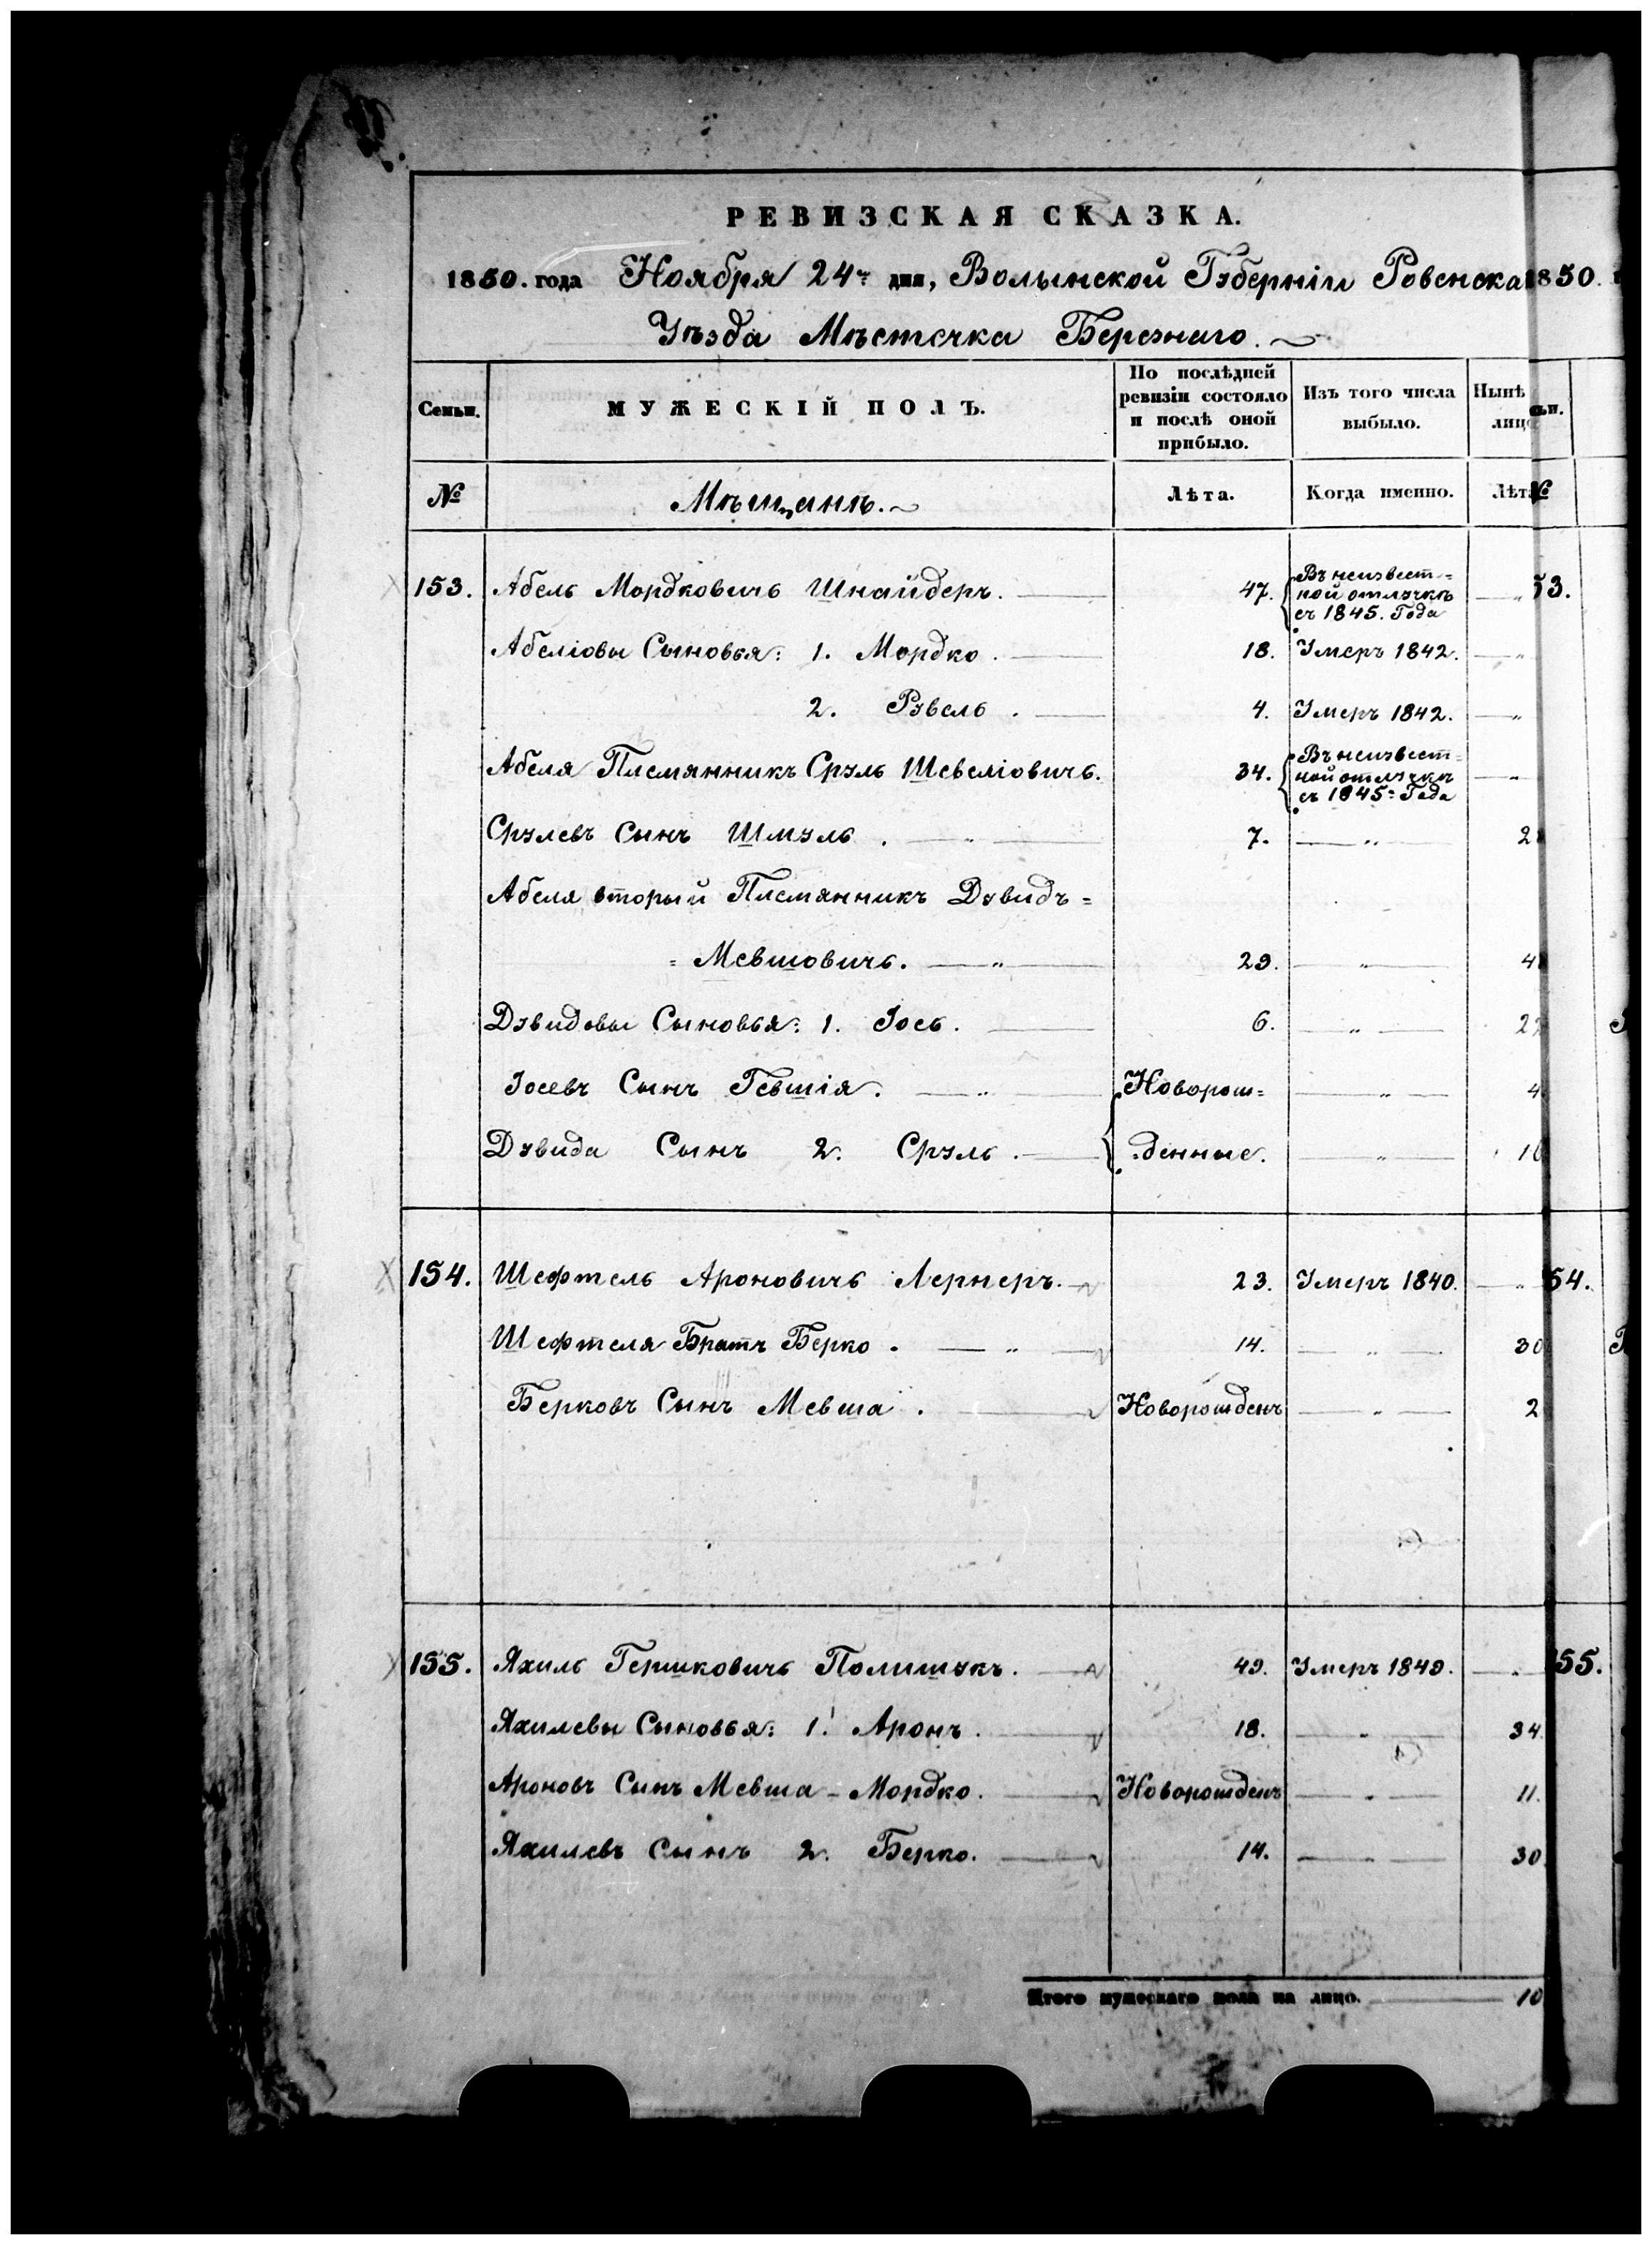 РЕВИЗСКАЯ СКАЗКА.
1850. года Ноября 24го дня, Волынской Губерніи Ровенска
1850.
Уѣзда Мѣстечка Березнаго.
Семьи.
МУЖЕСКІЙ ПОЛЪ.
По послѣдней ревизіи состояло и послѣ оной прибыло.
Изъ того числа выбыло.
Нынѣ лицо
ьи.
№
Мѣщанъ.
Лѣта.
Когда именно.
Лѣта
№
153. Абель Мордковичь Шнайдеръ. 47. Въ неизвест=
ной отлучкѣ
съ 1845. Года
53.
Абеліовы Сыновья: 1. Мордко. 18. Умеръ 1842.
2. Рувель. 4. Умеръ 1842.
Абеля Племянникъ Сруль Шевеліовичь. 34. Въ неизвест=
ной отлучкѣ
съ 1845: Года
Срулевъ Сынъ Шмуль. 7. „ 2
Абеля вторый Племянникъ Дувидъ=
=Мевшовичь. „ 29. „ 4
Дувидовы Сыновья: 1. Іось. 6. „ 22
Іосевъ Сынъ Гевшія. „ Новорож= „ 4
Дувида Сынъ 2. Сруль. денные. „ 10
154. Шефтель Ароновичь Лернеръ. 23. Умеръ 1840. „ 54.
Шефтеля Братъ Берко. „ 14. „ 30
Берковъ Сынъ Мевша. Новорожденъ „ 2
155. Яхиль Гершковичь Полишукъ. 49. Умеръ 1849. „ 55.
Яхилевы Сыновья: 1. Аронъ. 18. „ 34.
Ароновъ Сынъ Мевша-Мордко. Новорожденъ „ 11.
Яхилевъ Сынъ 2. Берко. 14. „ 30
Итого мужескаго пола на лицо. 10